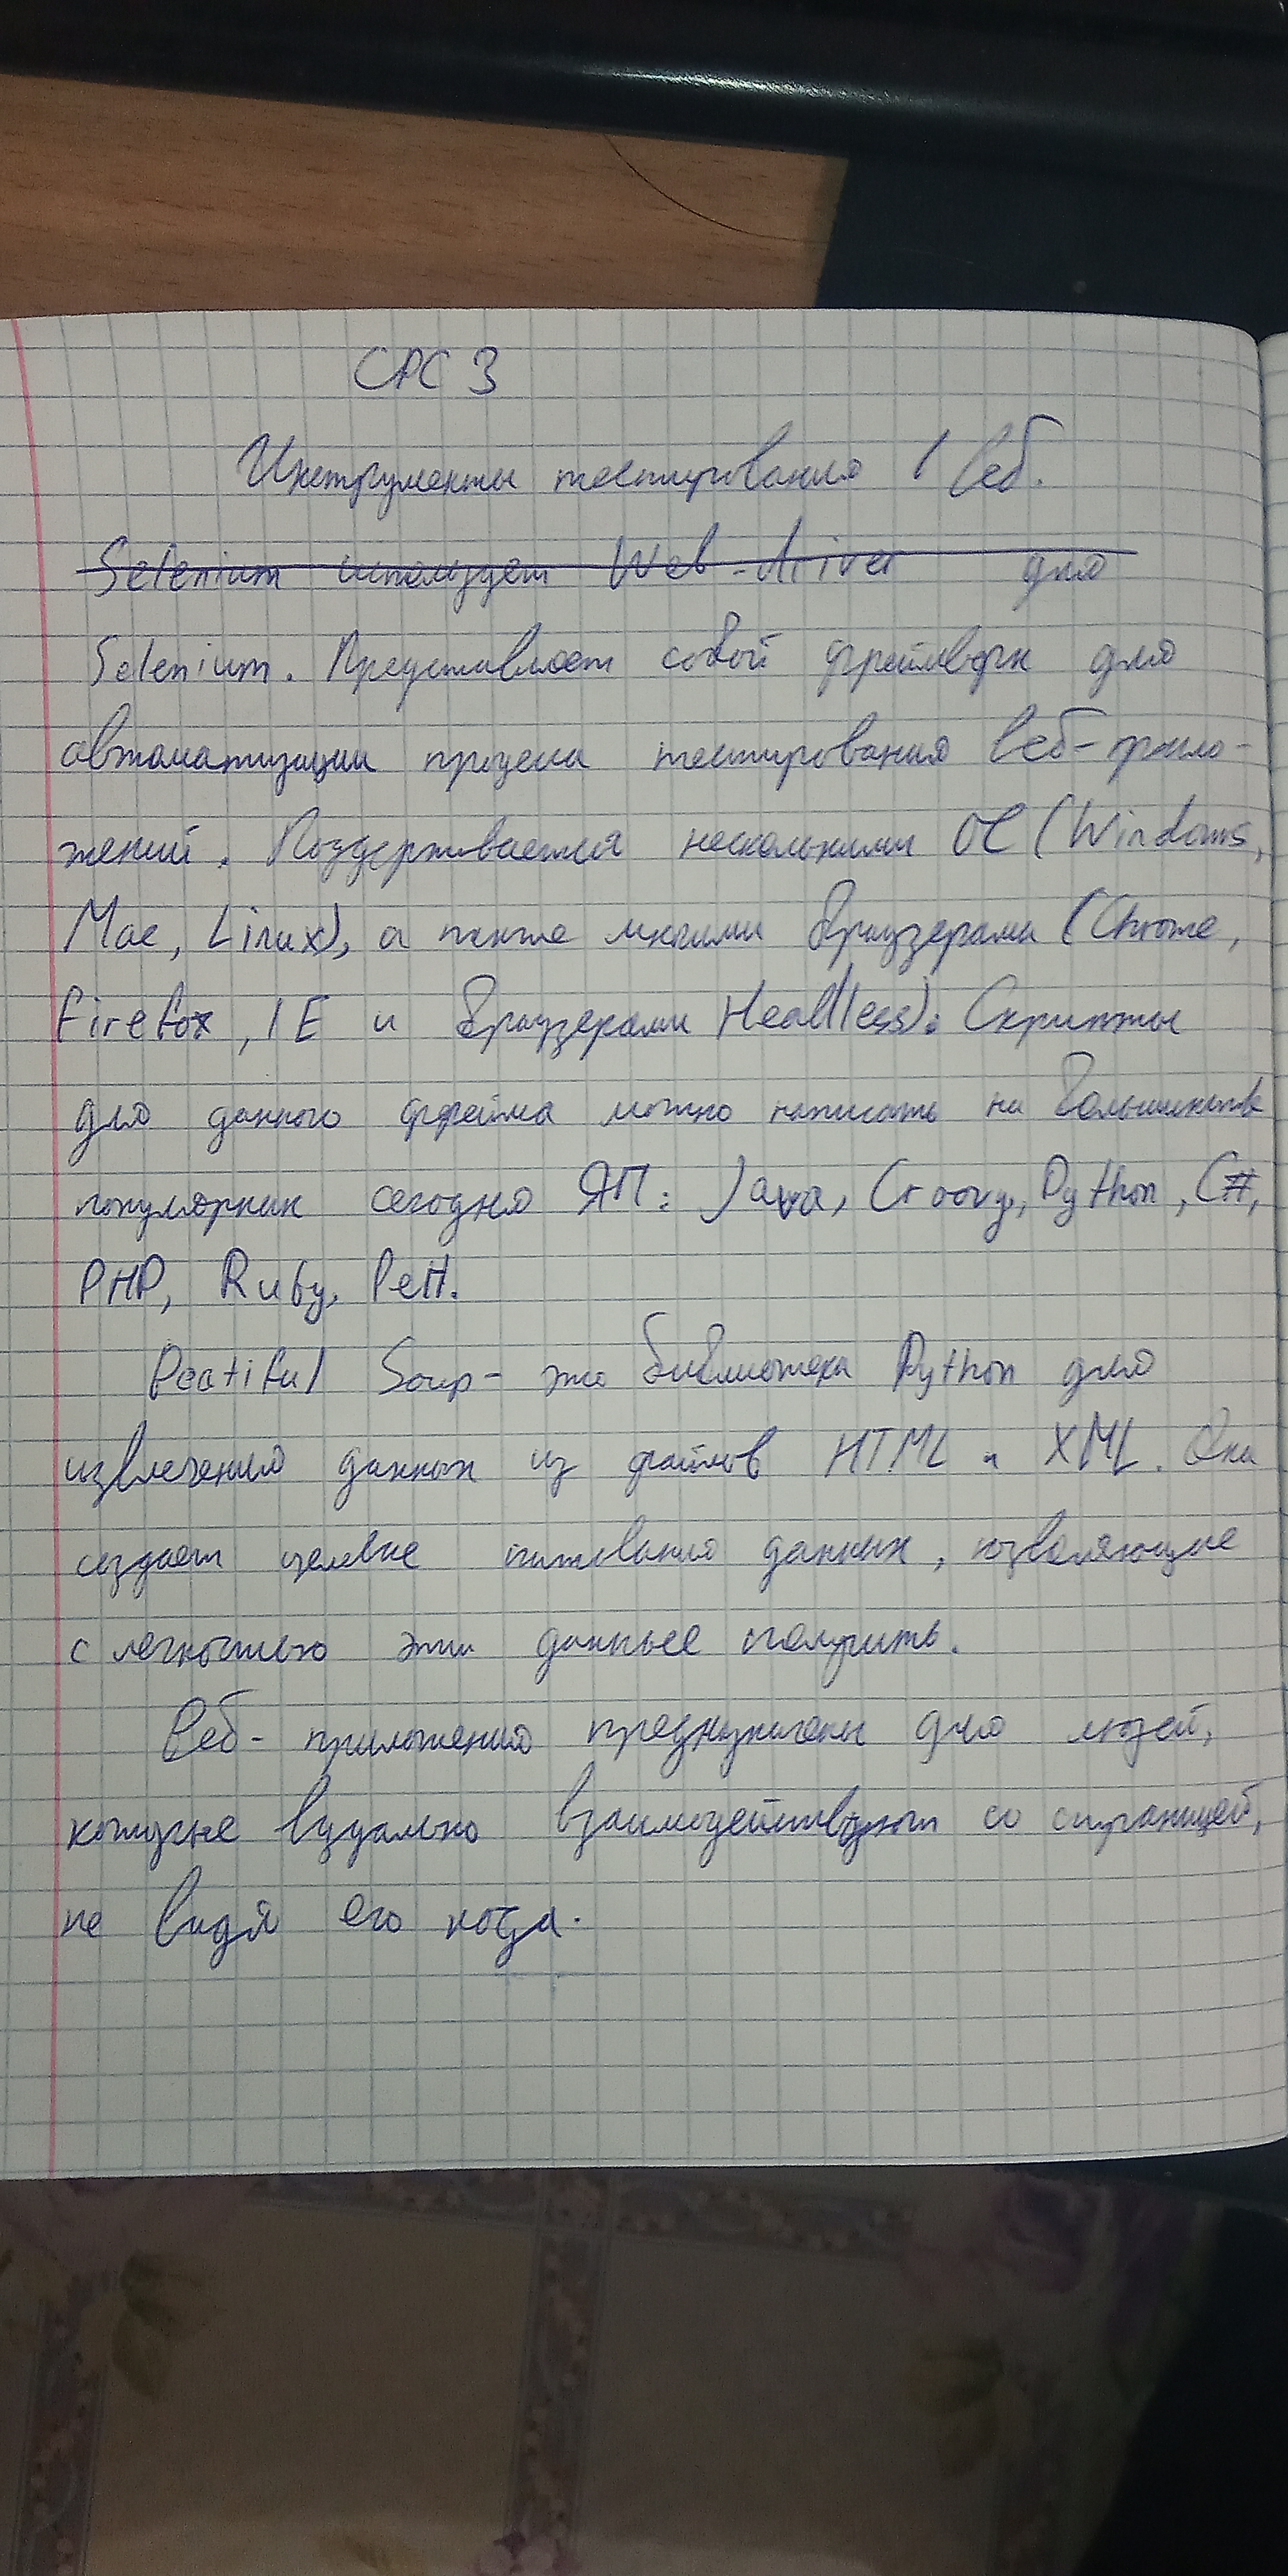 СРС 3
Инструменты тестирования / веб.
Selenium использует Web-driver для
Selenium. Представляет собой фреймворк для
автоматизации процесса тестирования веб-прило-
жений. Поддерживается несколькими ОС (Windows,
Mac, Linux), а также многими браузерами (Chrome,
Firefox, IE и браузерами Headless). Скрипты
для данного фрейма можно написать на большинстве
популярных сегодня ЯП: Java, Groovy, Python, C#,
PHP, Ruby, Perl.
Beatiful Soup - это библиотека Python для
извлечения данных из файлов HTML и XML. Она
создает целевые данных, позволяющие
с легкостью эти данные получить.
Веб-приложения предназначены для людей,
которые визуально взаимодействуют со страницей,
не видя его кода.